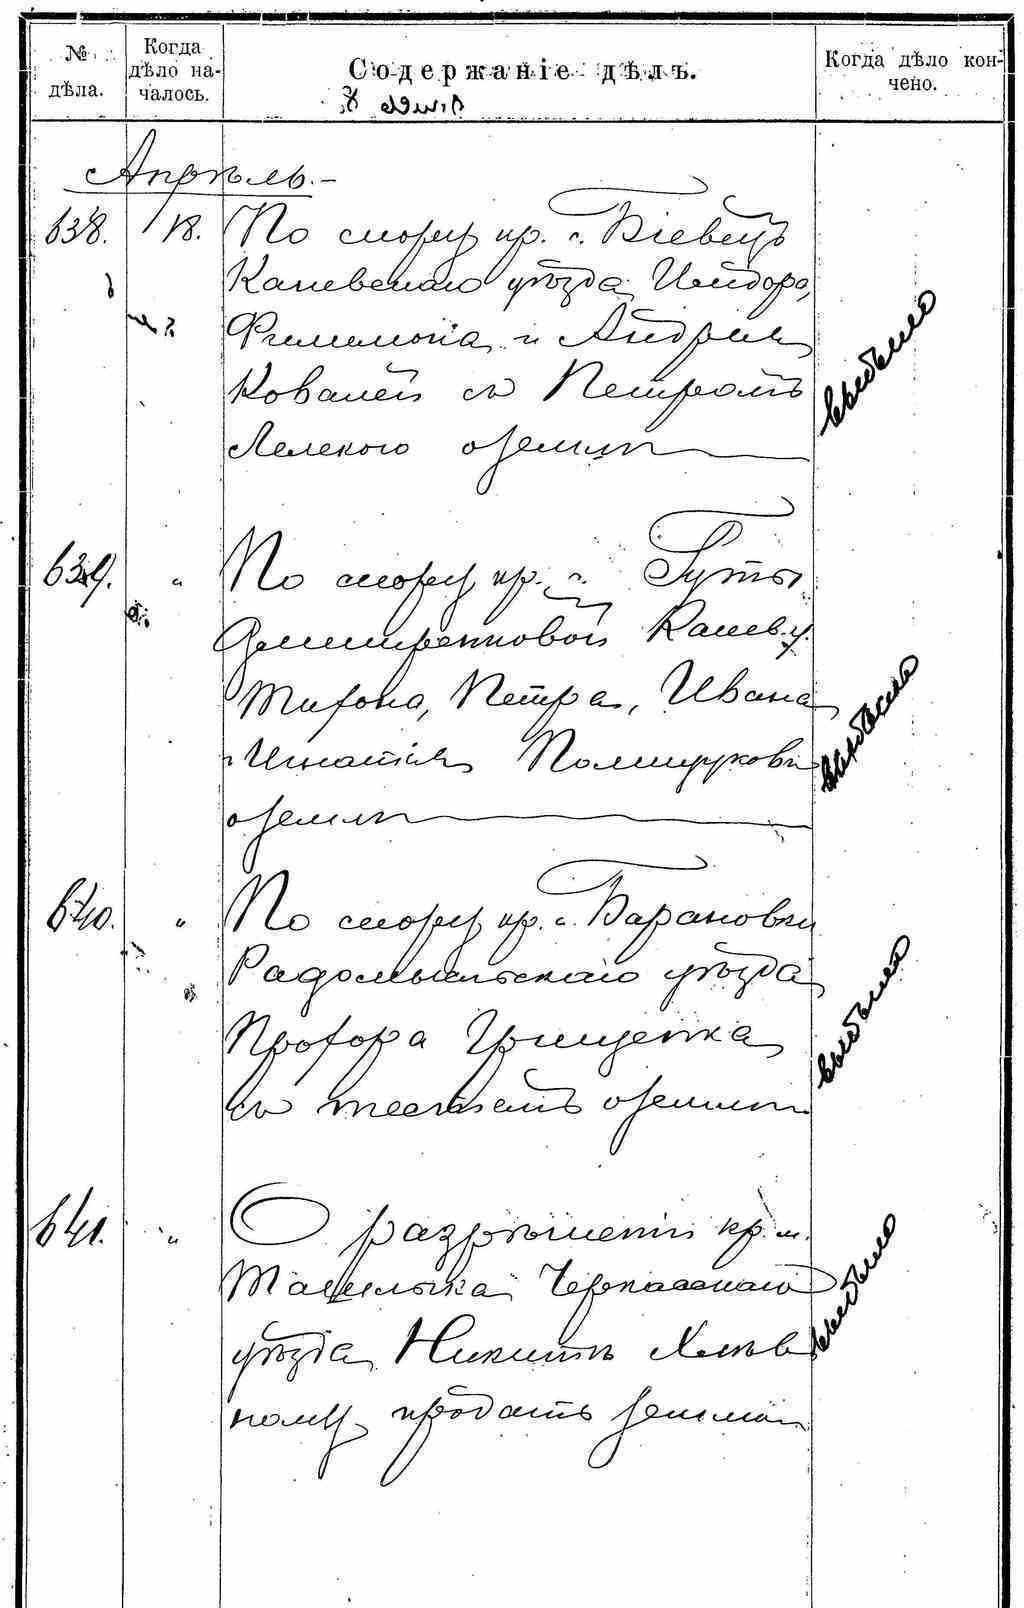 № дѣла.
Когда дѣло началось.
Содержаніе дѣлъ.
Когда дѣло кончено.
Апрѣль.
638. 18. По спору кр. с. Біевецъ
Каневскаго уѣзда Исидора,
Филимона и Андрея
Ковалей съ Петромъ
Лелекою о землѣ
639. " По спору кр. с. Гуты
Канев. у.
Тихона, Петра, Ивана
и Игнатія Полищуковъ
о землѣ
640. " По спору кр. с. Барановки
Радомысльскаго уѣзда
Прохора Грищенка
съ о землѣ
641. " О разрѣшеніи кр. м.
Ташлыка Черкасскаго
уѣзда Никитѣ Хлѣв
ному продать землю